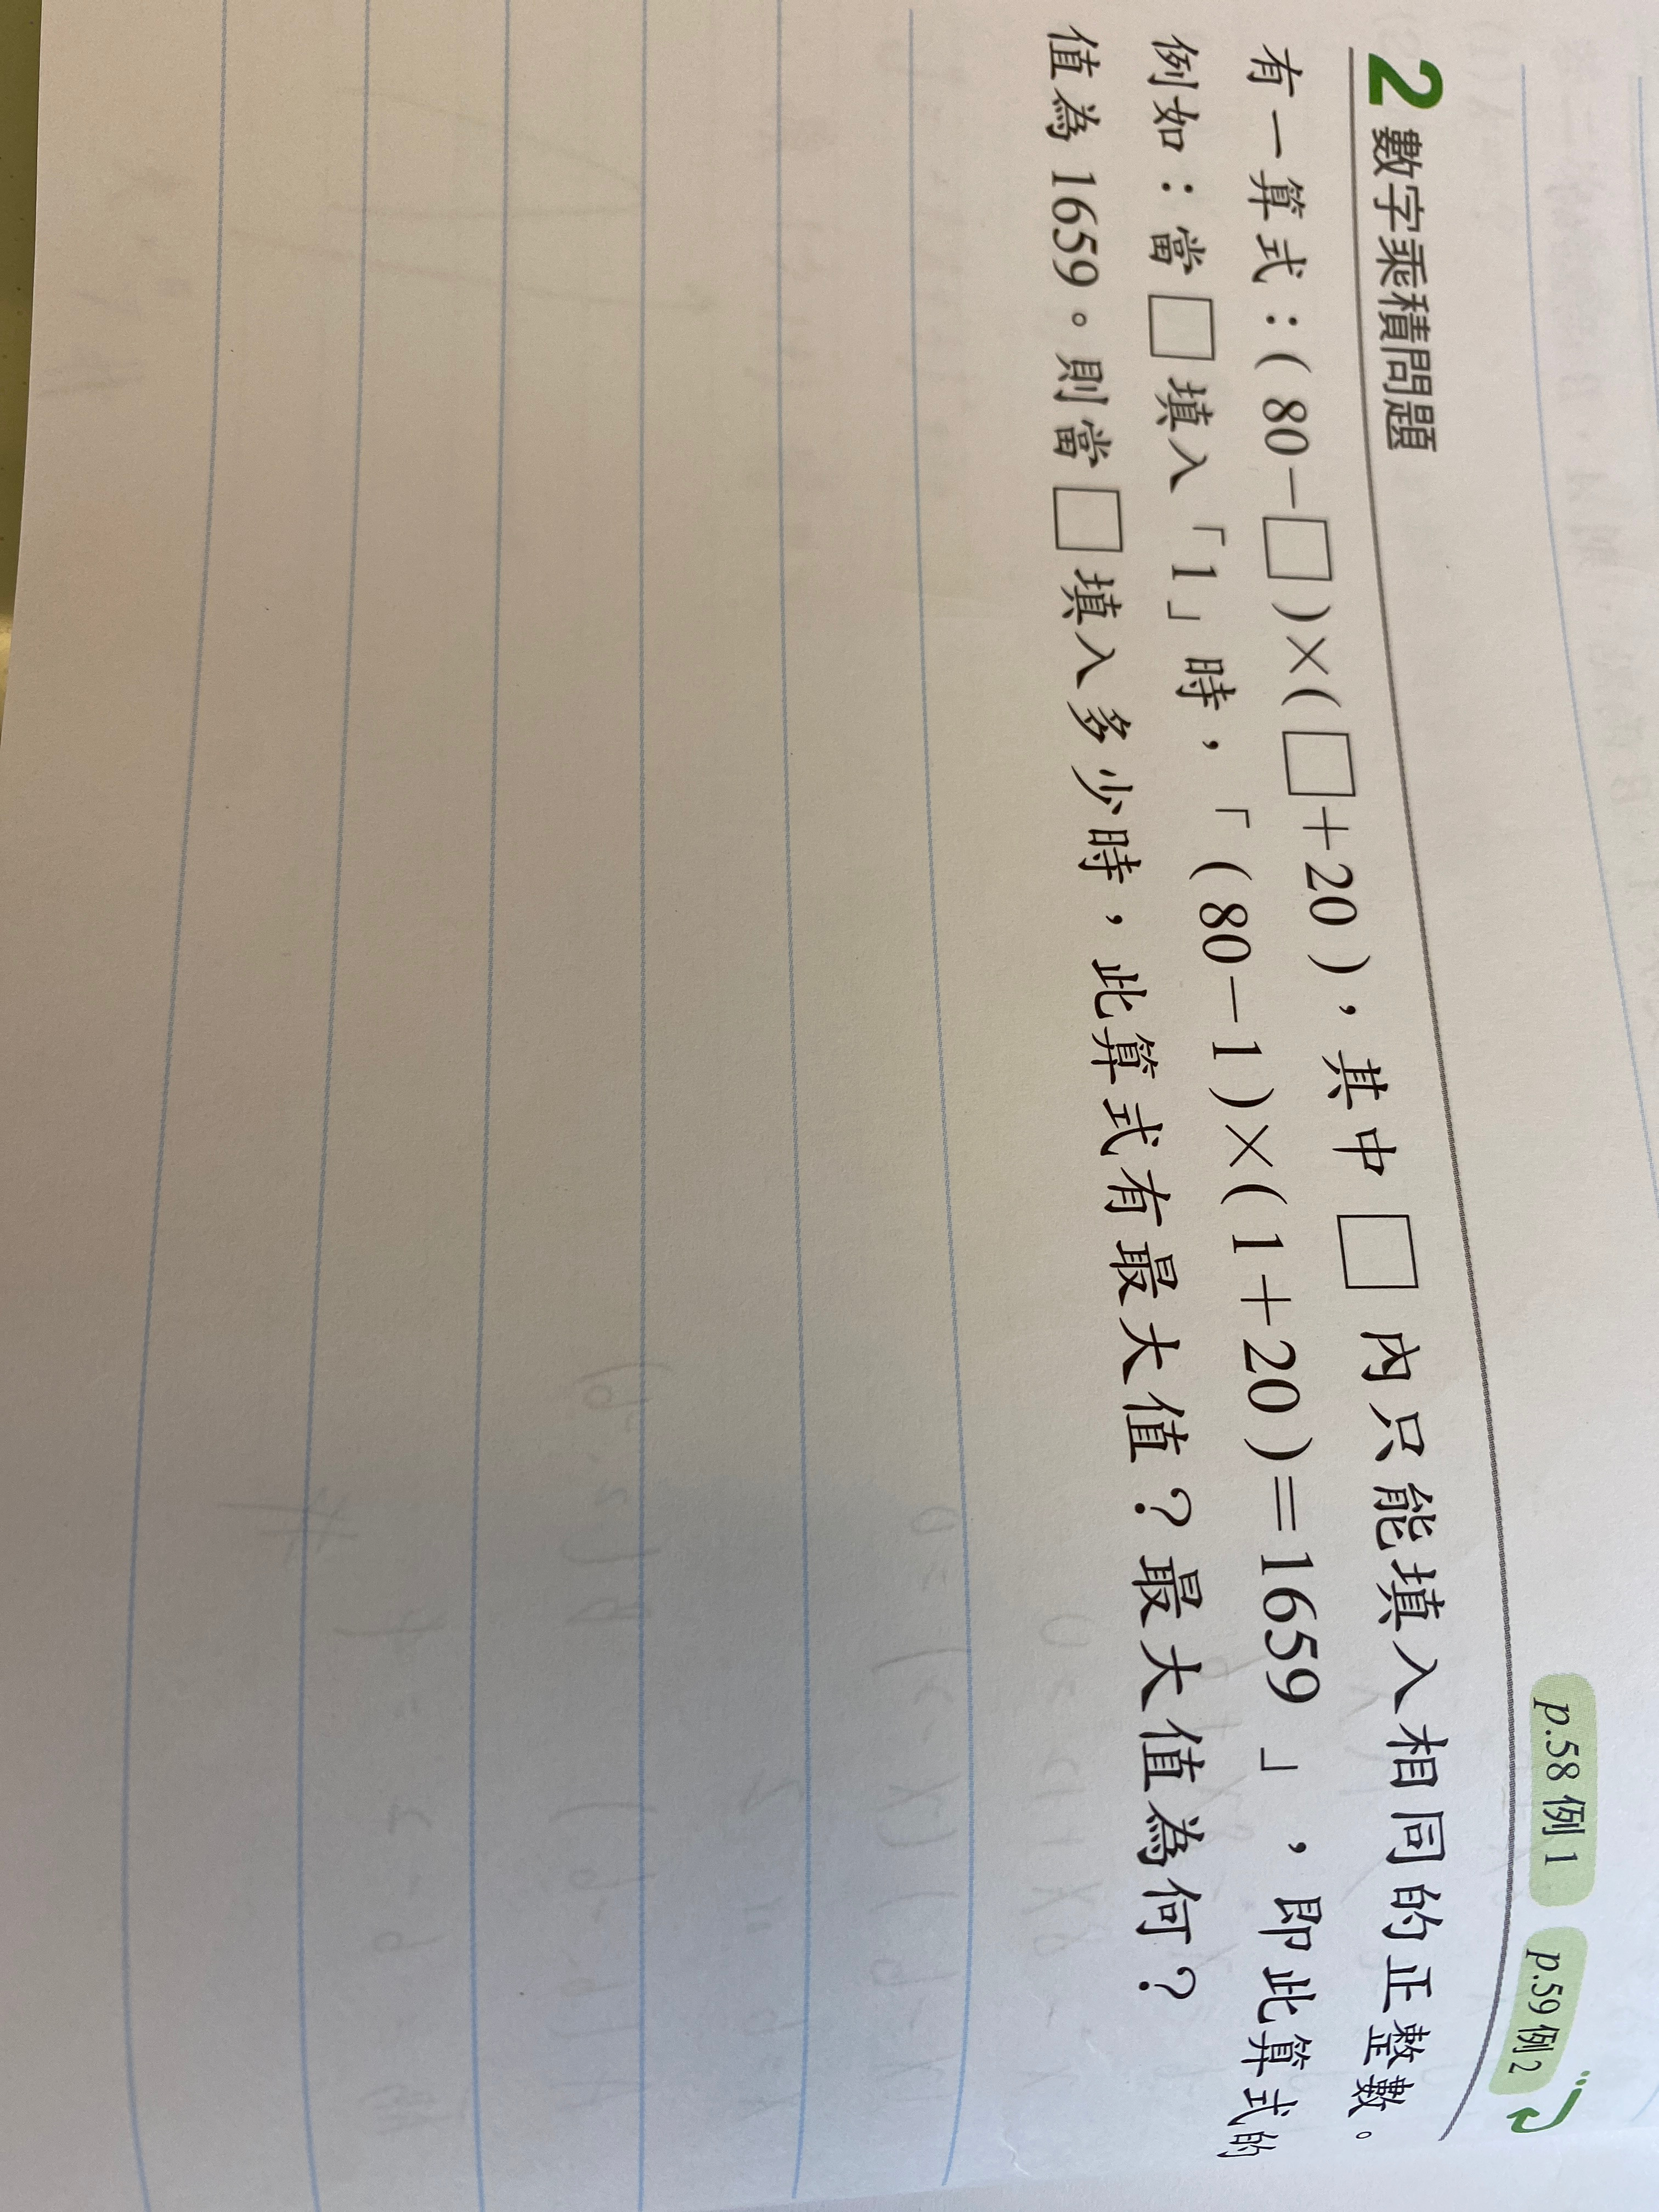 p.58 例1 p.59 例2
2 數字乘積問題
有一算式：(80－□)×(□＋20)，其中□內只能填入相同的正整數。
例如：當□填入「1」時，「(80－1)×(1＋20)＝1659」，即此算式的
值為1659。則當□填入多少時，此算式有最大值？最大值為何？